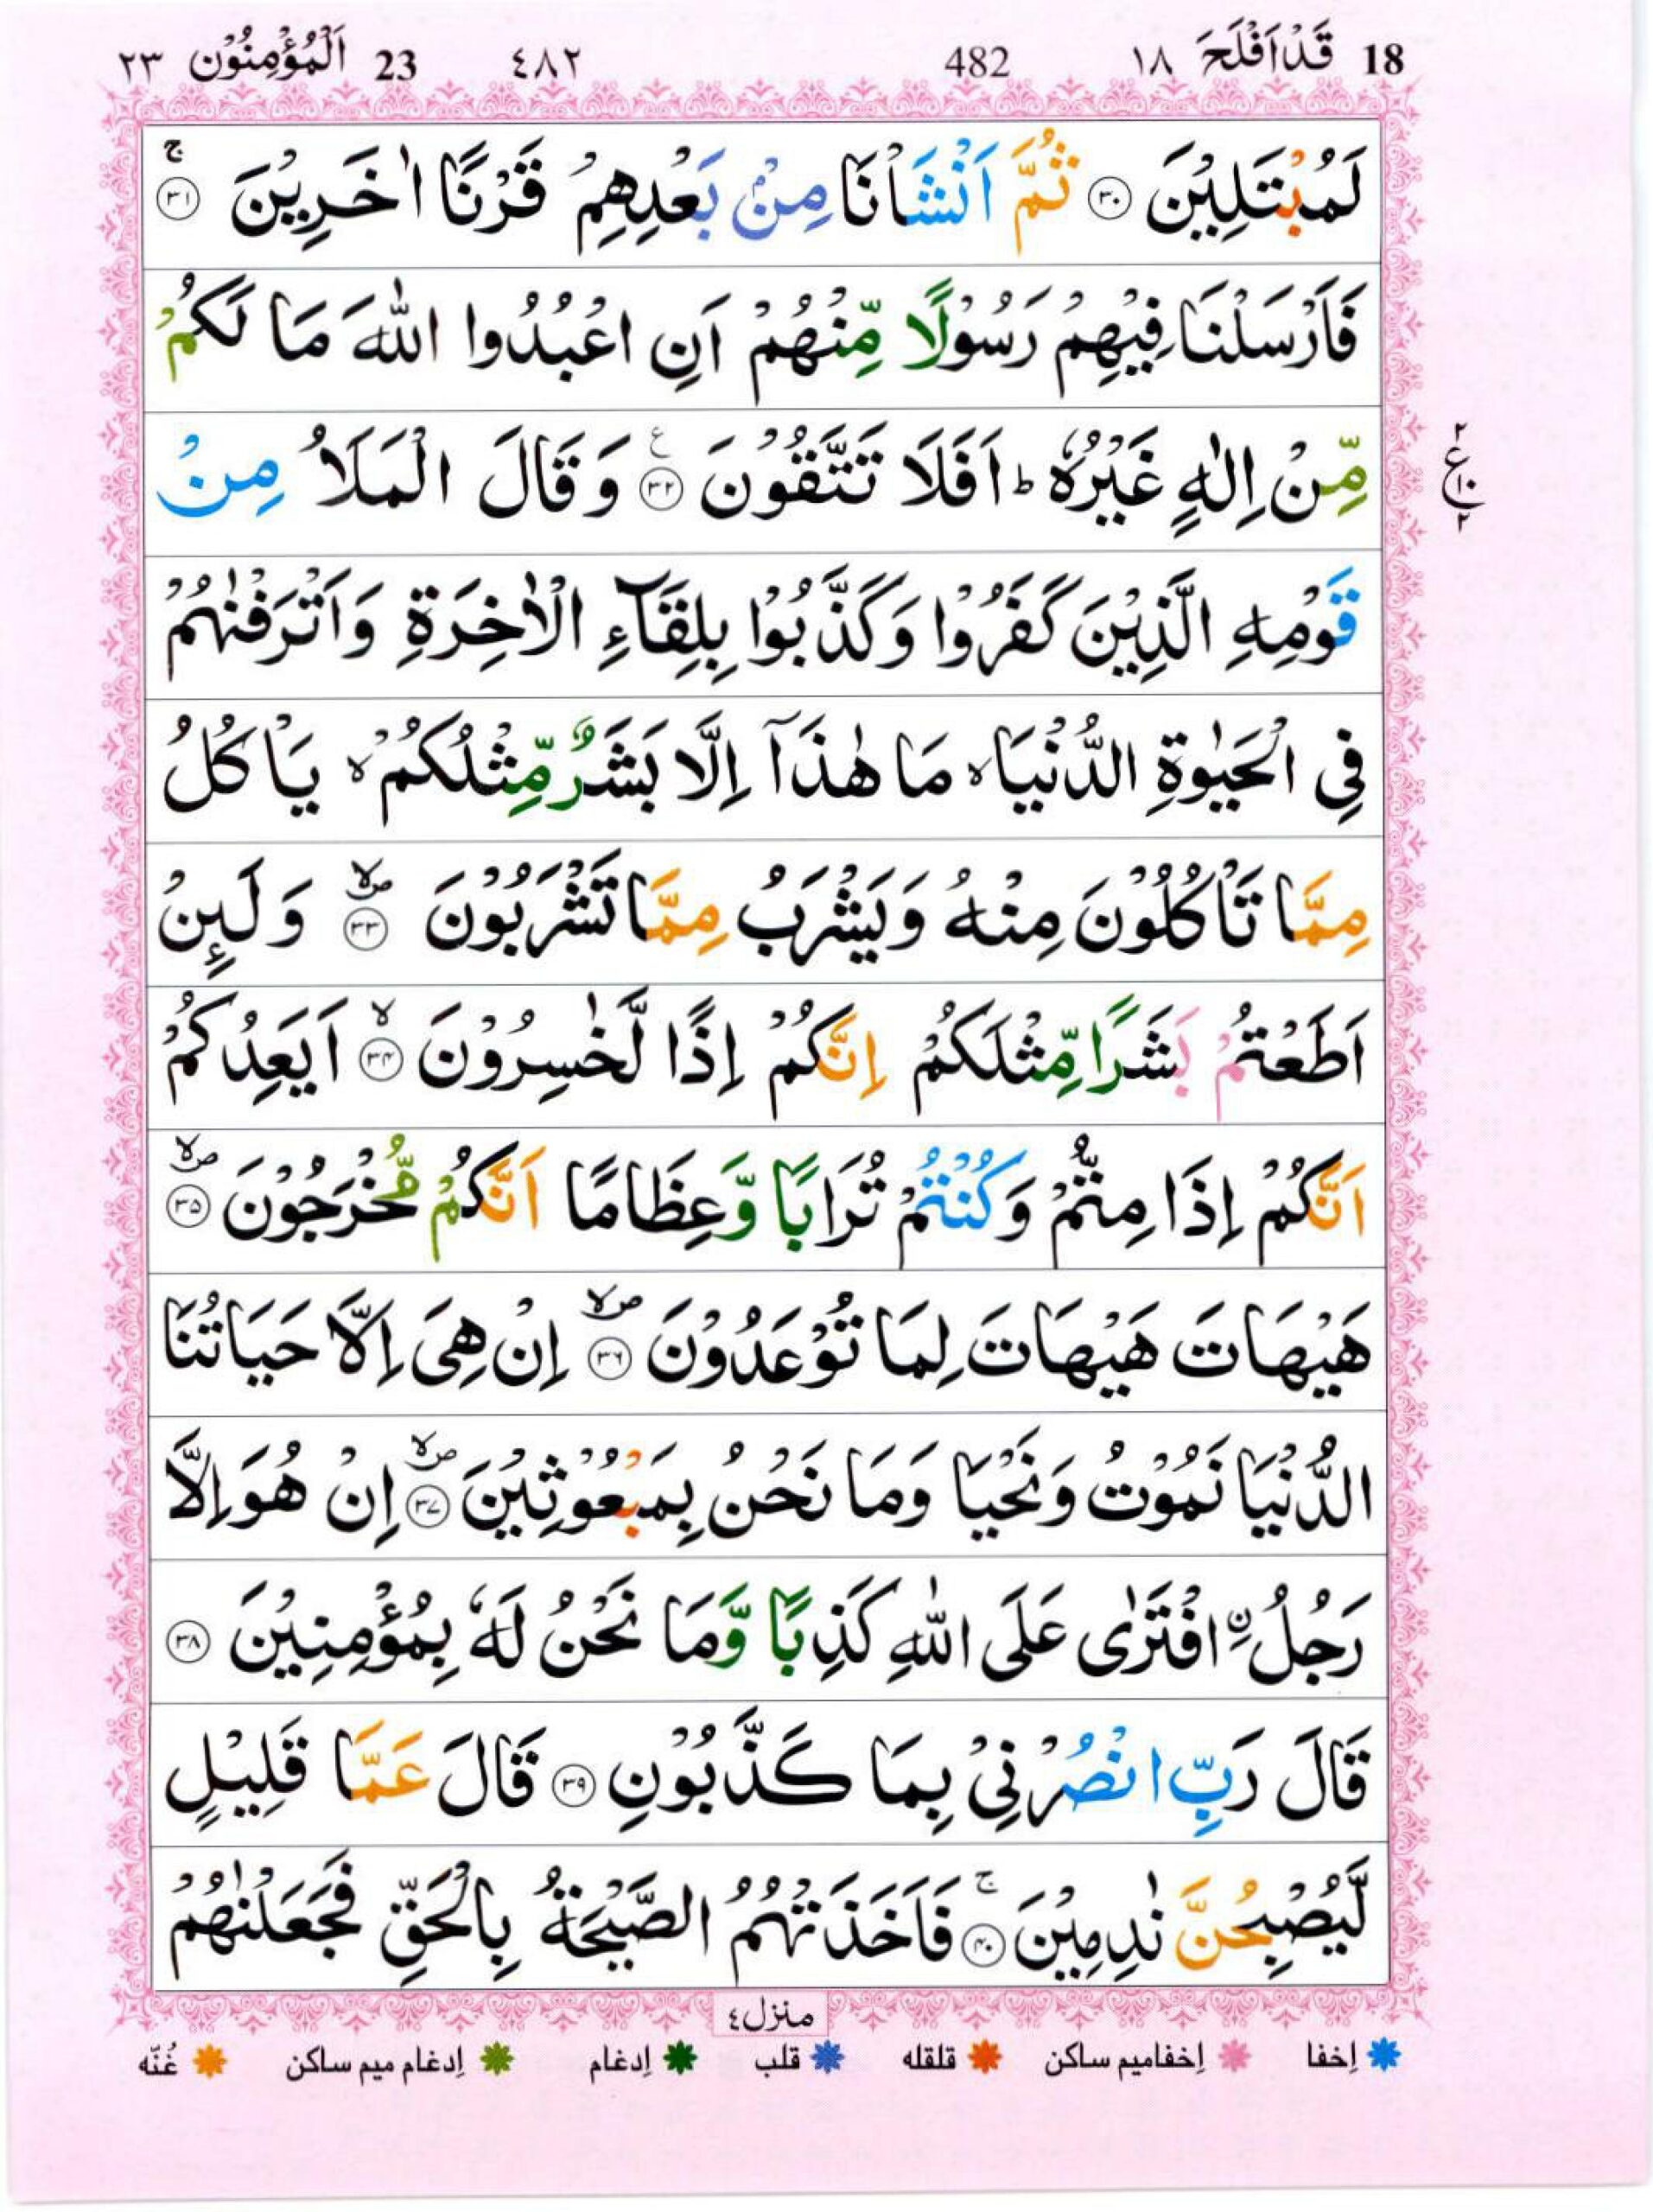 18 قَدْ اَفْلَحَ ١٨ 482 ٤٨٢ 23 اَلْمُؤْمِنُوْن ٢٣
لَمُبْتَلِيْنَ ﴿۳۰﴾ ثُمَّ اَنْشَاْنَا مِنْۢ بَعْدِهِمْ قَرْنًا اٰخَرِيْنَ ۚ﴿۳۱﴾
فَاَرْسَلْنَا فِيْهِمْ رَسُوْلًا مِّنْهُمْ اَنِ اعْبُدُوا اللّٰهَ مَا لَكُمْ
مِّنْ اِلٰهٍ غَيْرُهٗ ؕ اَفَلَا تَتَّقُوْنَ ﴿۳۲﴾ ع وَقَالَ الْمَلَاُ مِنْ
۲ ع ۱۰ ۲
قَوْمِهِ الَّذِيْنَ كَفَرُوْا وَكَذَّبُوْا بِلِقَآءِ الْاٰخِرَةِ وَاَتْرَفْنٰهُمْ
فِي الْحَيٰوةِ الدُّنْيَا ۙ مَا هٰذَآ اِلَّا بَشَرٌ مِّثْلُكُمْ ۙ يَاْكُلُ
مِمَّا تَاْكُلُوْنَ مِنْهُ وَيَشْرَبُ مِمَّا تَشْرَبُوْنَ ﴿۳۳﴾ۙ صلا وَلَىِٕنْ
اَطَعْتُمْ بَشَرًا مِّثْلَكُمْ اِنَّكُمْ اِذًا لَّخٰسِرُوْنَ ۙ﴿۳۴﴾ اَيَعِدُكُمْ
اَنَّكُمْ اِذَا مِتُّمْ وَكُنْتُمْ تُرَابًا وَّعِظَامًا اَنَّكُمْ مُّخْرَجُوْنَ ﴿۳۵﴾ صلا
هَيْهَاتَ هَيْهَاتَ لِمَا تُوْعَدُوْنَ ﴿۳۶﴾ صلا اِنْ هِيَ اِلَّا حَيَاتُنَا
الدُّنْيَا نَمُوْتُ وَنَحْيَا وَمَا نَحْنُ بِمَبْعُوْثِيْنَ ﴿۳۷﴾ صلا اِنْ هُوَ اِلَّا
رَجُلُ ۨافْتَرٰى عَلَى اللّٰهِ كَذِبًا وَّمَا نَحْنُ لَهٗ بِمُؤْمِنِيْنَ ﴿۳۸﴾
قَالَ رَبِّ انْصُرْنِيْ بِمَا كَذَّبُوْنِ ﴿۳۹﴾ قَالَ عَمَّا قَلِيْلٍ
لَّيُصْبِحُنَّ نٰدِمِيْنَ ۚ﴿۴۰﴾ فَاَخَذَتْهُمُ الصَّيْحَةُ بِالْحَقِّ فَجَعَلْنٰهُمْ
منزل ٤
إخفا إخفامیم ساکن قلقله قلب إدغام إدغام میم ساکن غُنّه